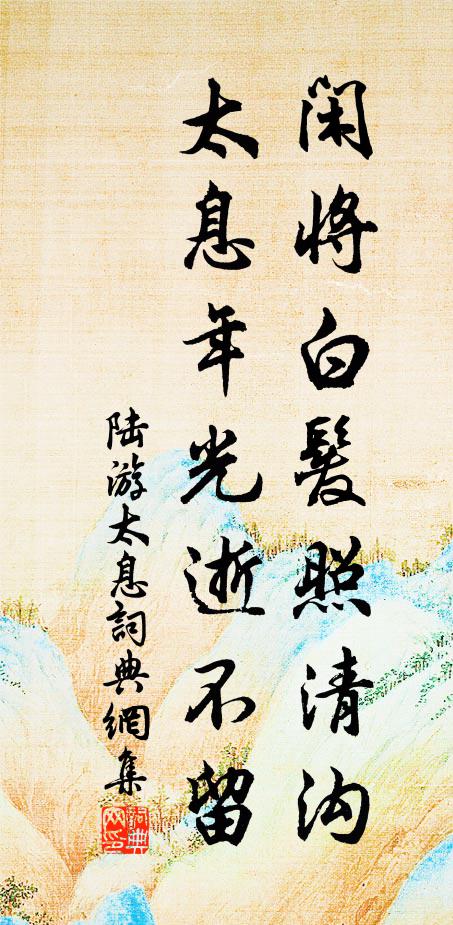 閑將白髮照清沟
太息年光逝不留
陆游太息詞典網集
詞典